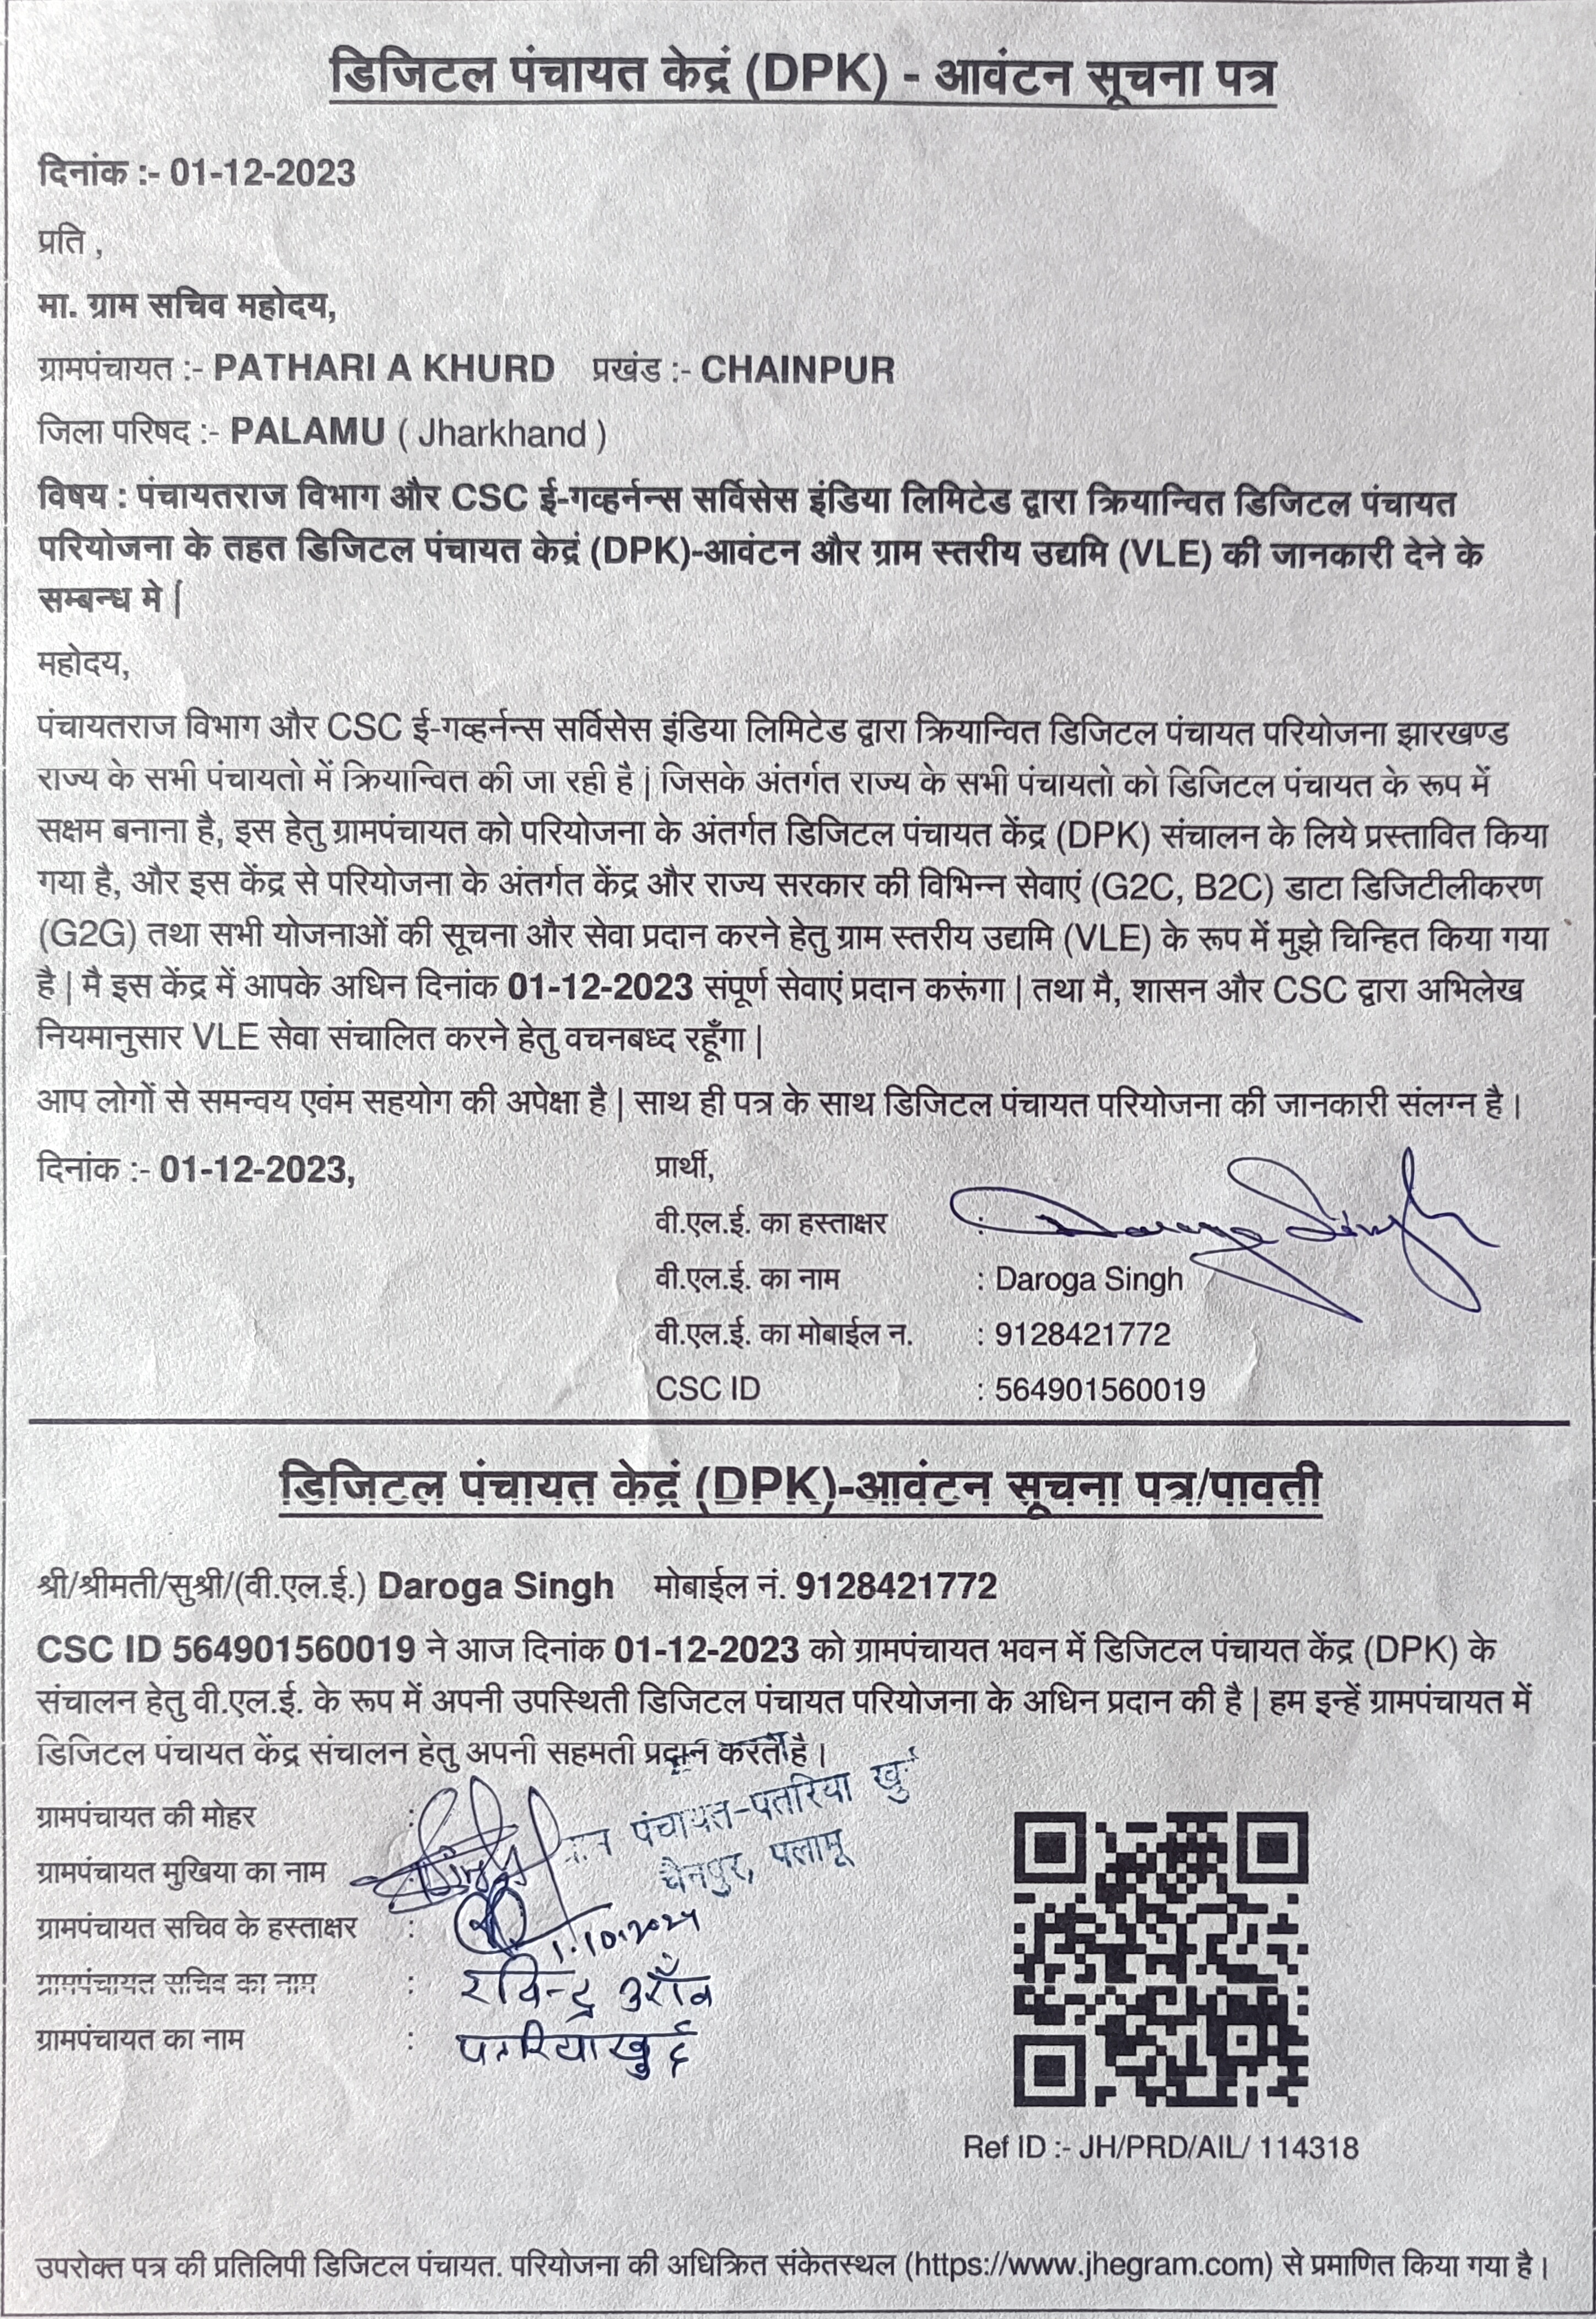 डिजिटल पंचायत केद्रं (DPK) - आवंटन सूचना पत्र
दिनांक :- 01-12-2023
प्रति ,
मा. ग्राम सचिव महोदय,
ग्रामपंचायत :- PATHARI A KHURD प्रखंड :- CHAINPUR
जिला परिषद :- PALAMU ( Jharkhand )
विषय : पंचायतराज विभाग और CSC ई-गव्हर्नन्स सर्विसेस इंडिया लिमिटेड द्वारा क्रियान्वित डिजिटल पंचायत
परियोजना के तहत डिजिटल पंचायत केद्रं (DPK)-आवंटन और ग्राम स्तरीय उद्यमि (VLE) की जानकारी देने के
सम्बन्ध मे |
महोदय,
पंचायतराज विभाग और CSC ई-गव्हर्नन्स सर्विसेस इंडिया लिमिटेड द्वारा क्रियान्वित डिजिटल पंचायत परियोजना झारखण्ड
राज्य के सभी पंचायतो में क्रियान्वित की जा रही है | जिसके अंतर्गत राज्य के सभी पंचायतो को डिजिटल पंचायत के रूप में
सक्षम बनाना है, इस हेतु ग्रामपंचायत को परियोजना के अंतर्गत डिजिटल पंचायत केंद्र (DPK) संचालन के लिये प्रस्तावित किया
गया है, और इस केंद्र से परियोजना के अंतर्गत केंद्र और राज्य सरकार की विभिन्न सेवाएं (G2C, B2C) डाटा डिजिटीलीकरण
(G2G) तथा सभी योजनाओं की सूचना और सेवा प्रदान करने हेतु ग्राम स्तरीय उद्यमि (VLE) के रूप में मुझे चिन्हित किया गया
है | मै इस केंद्र में आपके अधिन दिनांक 01-12-2023 संपूर्ण सेवाएं प्रदान करूंगा | तथा मै, शासन और CSC द्वारा अभिलेख
नियमानुसार VLE सेवा संचालित करने हेतु वचनबध्द रहूँगा |
आप लोगों से समन्वय एवंम सहयोग की अपेक्षा है | साथ ही पत्र के साथ डिजिटल पंचायत परियोजना की जानकारी संलग्न है।
दिनांक :- 01-12-2023, प्रार्थी,
वी.एल.ई. का हस्ताक्षर : Daroga Singh
वी.एल.ई. का नाम : Daroga Singh
वी.एल.ई. का मोबाईल न. : 9128421772
CSC ID : 564901560019
डिजिटल पंचायत केद्रं (DPK)-आवंटन सूचना पत्र/पावती
श्री/श्रीमती/सुश्री/(वी.एल.ई.) Daroga Singh मोबाईल नं. 9128421772
CSC ID 564901560019 ने आज दिनांक 01-12-2023 को ग्रामपंचायत भवन में डिजिटल पंचायत केंद्र (DPK) के
संचालन हेतु वी.एल.ई. के रूप में अपनी उपस्थिती डिजिटल पंचायत परियोजना के अधिन प्रदान की है | हम इन्हें ग्रामपंचायत में
डिजिटल पंचायत केंद्र संचालन हेतु अपनी सहमती प्रदान करते है।
ग्रामपंचायत की मोहर :
पंचायत-पतरिया खुर्द
चैनपुर, पलामू
ग्रामपंचायत मुखिया का नाम :
ग्रामपंचायत सचिव के हस्ताक्षर : 1.10.2024
ग्रामपंचायत सचिव का नाम : रविन्द्र उराँव
ग्रामपंचायत का नाम : पतरिया खुर्द
Ref ID :- JH/PRD/AIL/ 114318
उपरोक्त पत्र की प्रतिलिपी डिजिटल पंचायत. परियोजना की अधिक्रित संकेतस्थल (https://www.jhegram.com) से प्रमाणित किया गया है।